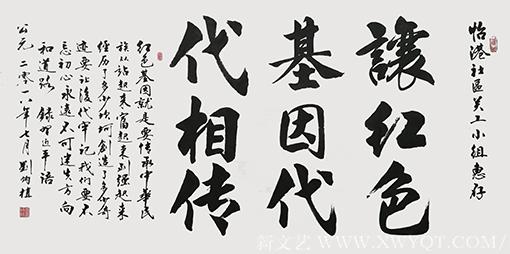 怡港社区关工小组惠存
讓红色
基因代
代相传
红色基因就是要传承中华民
族从站起来富起来到强起来
经历了多少坎坷创造了多少奇
迹要让後代牢记我们要不
忘初心永远不可迷失方向
和道路 錄习近平语
公元二零一八年七月劉
新文艺 WWW.XWYQT.COM